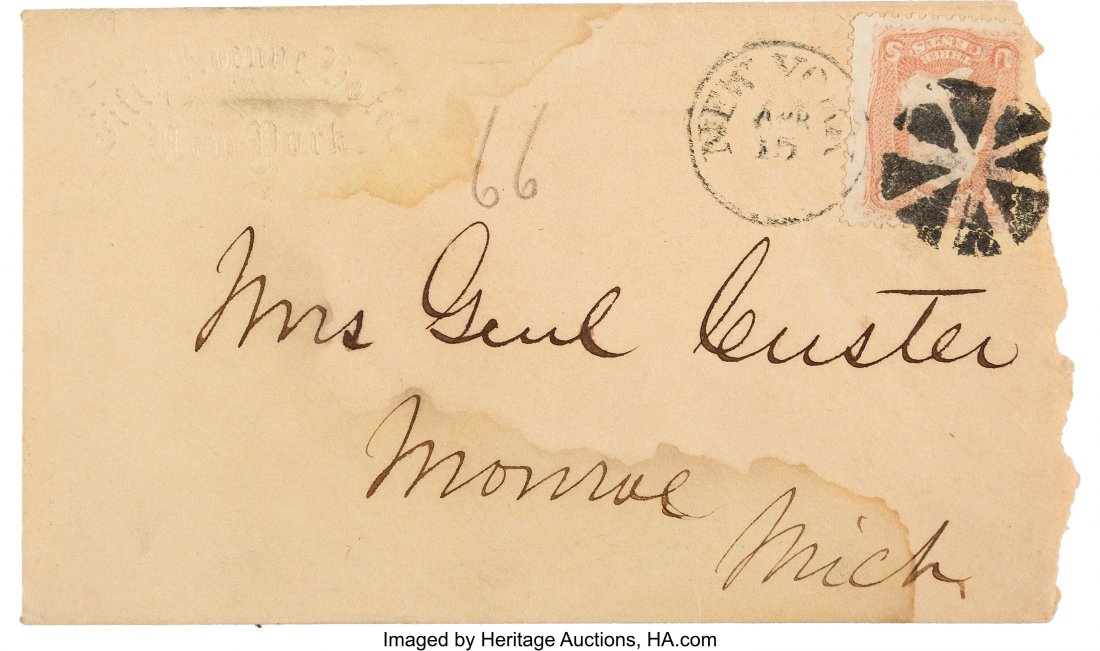 New York
66
NEW YORK
APR
15
U
3
CENTS
Mrs Genl Custer
Monroe
Mich
Imaged by Heritage Auctions, HA.com